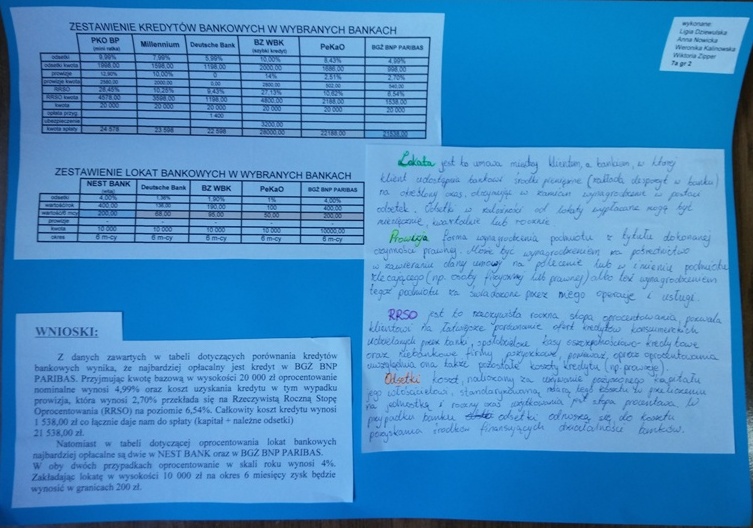 wykonane:
Ligia Dziewulska
Anna Nowicka
Weronika Kalinowska
Wiktoria Zipper
7a gr 2
ZESTAWIENIE KREDYTÓW BANKOWYCH W WYBRANYCH BANKACH
PKO BP Millennium Deutsche Bank BZ WBK PeKaO BGŻ BNP PARIBAS
(mini ratka) (szybki kredyt)
odsetki 9,99% 7,99% 5,99% 10,00% 8,43% 4,99%
odsetki kwota 1998,00 1598,00 1198,00 2000,00 1686,00 998,00
prowizje 12,90% 10,00% 0 14% 2,51% 2,70%
prowizje kwota 2580,00 2000,00 0,00 2800,00 502,00 540,00
RRSO 28,45% 10,25% 9,43% 27,13% 10,62% 6,54%
RRSO kwota 4578,00 3598,00 1198,00 4800,00 2188,00 1538,00
kwota 20 000 20 000 20 000 20 000 20 000 20 000
opłata przyg. 1 400
ubezpieczenie 3200,00
kwota spłaty 24 578 23 598 22 598 28000,00 22188,00 21538,00
ZESTAWIENIE LOKAT BANKOWYCH W WYBRANYCH BANKACH
NEST BANK Deutsche Bank BZ WBK PeKaO BGŻ BNP PARIBAS
odsetki 4,00% 1,36% 1,90% 1% 4,00%
wartość/rok 400,00 136,00 190,00 100 400,00
wartość/6 mcy 200,00 68,00 95,00 50,00 200,00
prowizje - - - - -
kwota 10 000 10 000 10 000 10 000 10000,00
okres 6 m-cy 6 m-cy 6 m-cy 6 m-cy 6 m-cy
Lokata jest to umowa między klientem, a bankiem, w której
klient udostępnia bankowi środki pieniężne (zakłada depozyt w banku)
na określony czas, otrzymując w zamian wynagrodzenie w postaci
odsetek. Odsetki w zależności od lokaty wypłacane mogą być
miesięcznie, kwartalnie lub rocznie.
Prowizja forma wynagrodzenia podmiotu z tytułu dokonanej
czynności prawnej. Może być wynagrodzeniem za pośrednictwo
w zawieraniu danej umowy na polecenie lub w imieniu podmiotu
zlecającego (np. osoby fizycznej lub prawnej) albo też wynagrodzeniem
tegoż podmiotu za świadczone przez niego operacje i usługi.
RRSO jest to rzeczywista roczna stopa oprocentowania, pozwala
klientowi na łatwiejsze porównanie ofert kredytów konsumenckich
udzielanych przez banki, spółdzielcze kasy oszczędnościowo-kredytowe
oraz niebankowe firmy pożyczkowe, ponieważ, oprócz oprocentowania
uwzględnia ona także pozostałe koszty kredytu (np. prowizje).
Odsetki koszt, naliczony za używanie pożyczonego kapitału
jego właścicielowi, standaryzowaną miarą tego kosztu w przeliczeniu
na jednostkę i roczny czas użytkowania jest stopa procentowa. W
przypadku banków odsetki odnoszą się do kosztu
pozyskania środków finansujących działalność banków.
WNIOSKI:
Z danych zawartych w tabeli dotyczących porównania kredytów
bankowych wynika, że najbardziej opłacalny jest kredyt w BGŻ BNP
PARIBAS. Przyjmując kwotę bazową w wysokości 20 000 zł oprocentowanie
nominalne wynosi 4,99% oraz koszt uzyskania kredytu w tym wypadku
prowizja, która wynosi 2,70% przekłada się na Rzeczywistą Roczną Stopę
Oprocentowania (RRSO) na poziomie 6,54%. Całkowity koszt kredytu wynosi
1 538,00 zł co łącznie daje nam do spłaty (kapitał + należne odsetki)
21 538,00 zł.
Natomiast w tabeli dotyczącej oprocentowania lokat bankowych
najbardziej opłacalne są dwie w NEST BANK oraz w BGŻ BNP PARIBAS.
W obu dwóch przypadkach oprocentowanie w skali roku wynosi 4%.
Zakładając lokatę w wysokości 10 000 zł na okres 6 miesięcy zysk będzie
wynosić w granicach 200 zł.